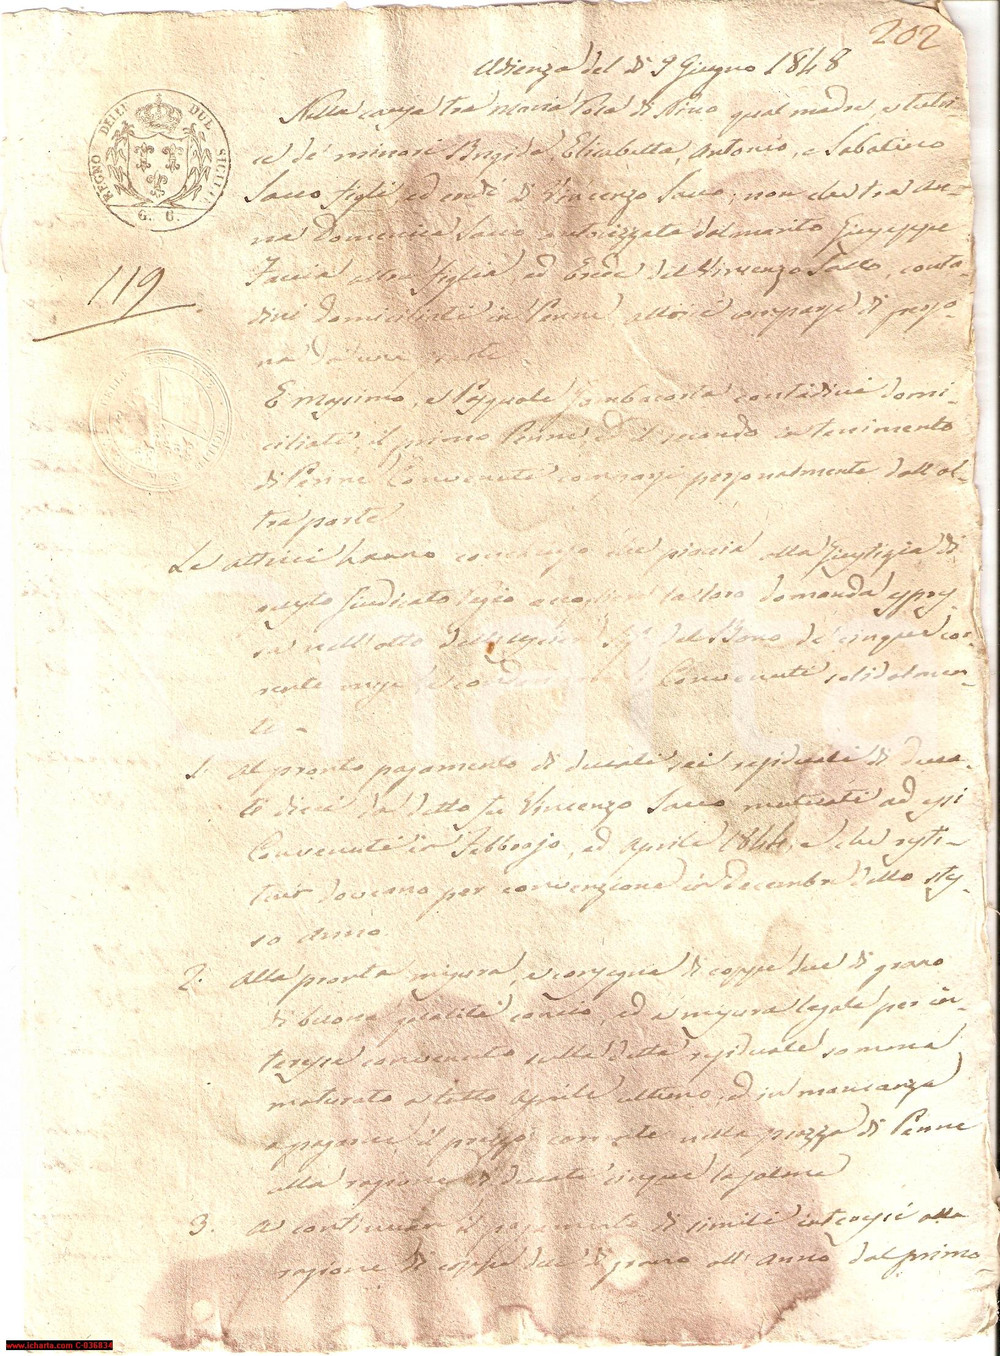 202
Udienza del dì 9 Giugno 1848
REGNO DELLE DUE SICILIE
G. C.
119
Nella causa tra Maria Rosa di Nino qual madre, e tutri-
ce de' minori Brigida, Elisabetta, Antonio, e Sabatino
Sacco figli, ed eredi di Vincenzo Sacco; non che tra An-
na Domenica Sacco autorizzata dal marito Giuseppe
altra figlia, ed Erede del Vincenzo Sacco, conta-
dini domiciliati in Penne, attrici comparse di perso-
na da una parte
E Massimo, e Pasquale contadini domi-
ciliati il primo Penne, ed il secondo in tenimento
di Penne Convenuti comparsi personalmente dall'al-
tra parte
Le attrici hanno conchiuso che piaccia alla Giustizia di
questo Giudicato Regio accogliere la loro domanda espres-
sa nell'atto dell'usciere del Bono de' cinque cor-
rente mese, e condannare i Convenuti solidalmen-
te -
1. Al pronto pagamento di ducati sei residuali di duca-
ti dieci da detto fu Vincenzo Sacco mutuati ad essi
Convenuti in Febbrajo, ed Aprile 1844, e che resti-
tuir doveano per convenzione in Decembre dello stes-
so anno
2. Alla pronta misura, e consegna di coppe due di grano
di buona qualità, ed a misura legale per in-
teresse convenuto sulla detta residuale somma
maturato a tutto Aprile ultimo, ed in mancanza
a pagarne il prezzo corrente nella piazza di Penne
alla ragione di ducati cinque la salma
3. A continuare il pagamento di simili interessi alla
ragione di coppe due di grano all'anno dal primo
Charta
www.icharta.com C-036834